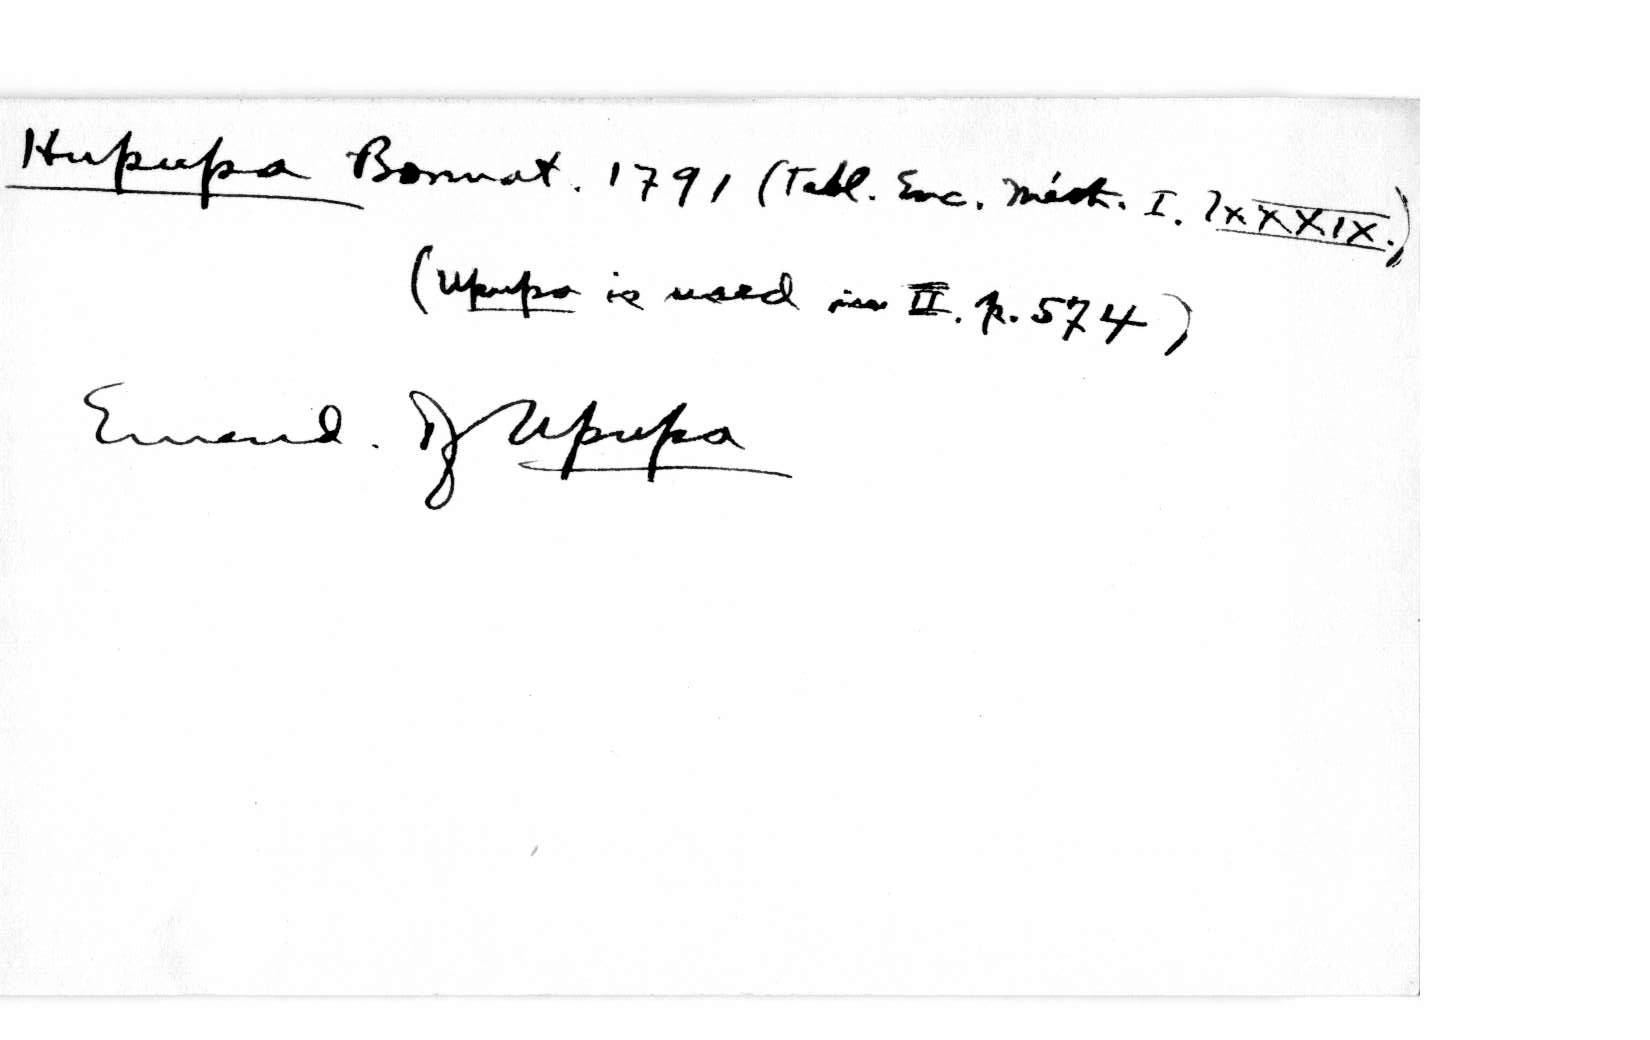 Hupupa Bonnat. 1791 (Tabl. Enc. Méth. I. lxxxix.)
(Upupa is used in II. p. 574)
Emend. of Upupa